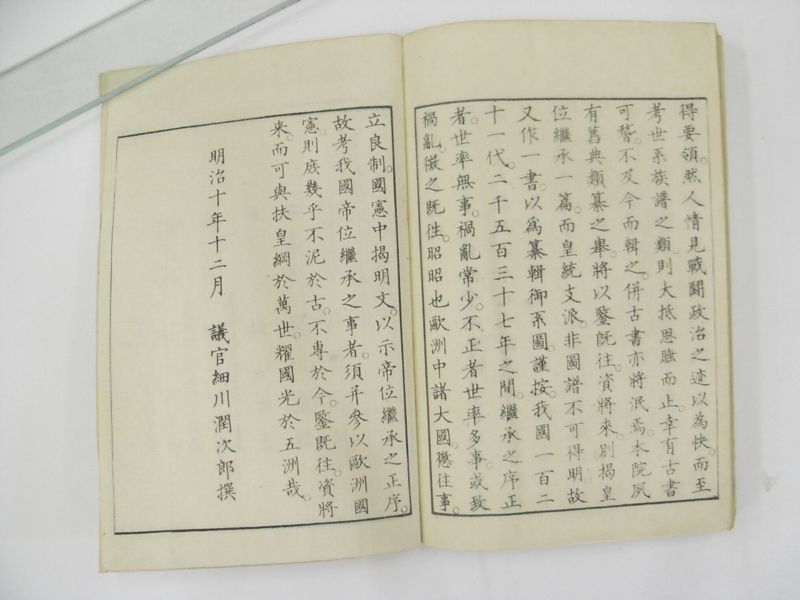 得要領。然人情見戰鬪政治之迹以為快。而至
考世系族譜之類。則大抵思臨而止。幸有古書
可誊。不及今而輯之。併古書亦將泯焉。本院夙
有舊典類纂之舉。將以鑒既往。資將來。別揭皇
位繼承一篇。而皇統支派。非圖譜不可得明。故
又作一書。以為纂輯御系圖。謹按。我國一百二
十一代。二千五百三十七年之間。繼承之序正
者。世率無事。禍亂常少。不正者世率多事。或致
禍亂。徵之既往。昭昭也歐洲中諸大國。懲往事。
立良制。國憲中揭明文。以示帝位繼承之正序。
故考我國帝位繼承之事者。須并參以歐洲國
憲。則庶幾乎不泥於古。不專於今。鑒既往。資將
来。而可與扶皇綱於萬世。耀國光於五洲哉。
明治十年十二月 議官細川潤次郎撰